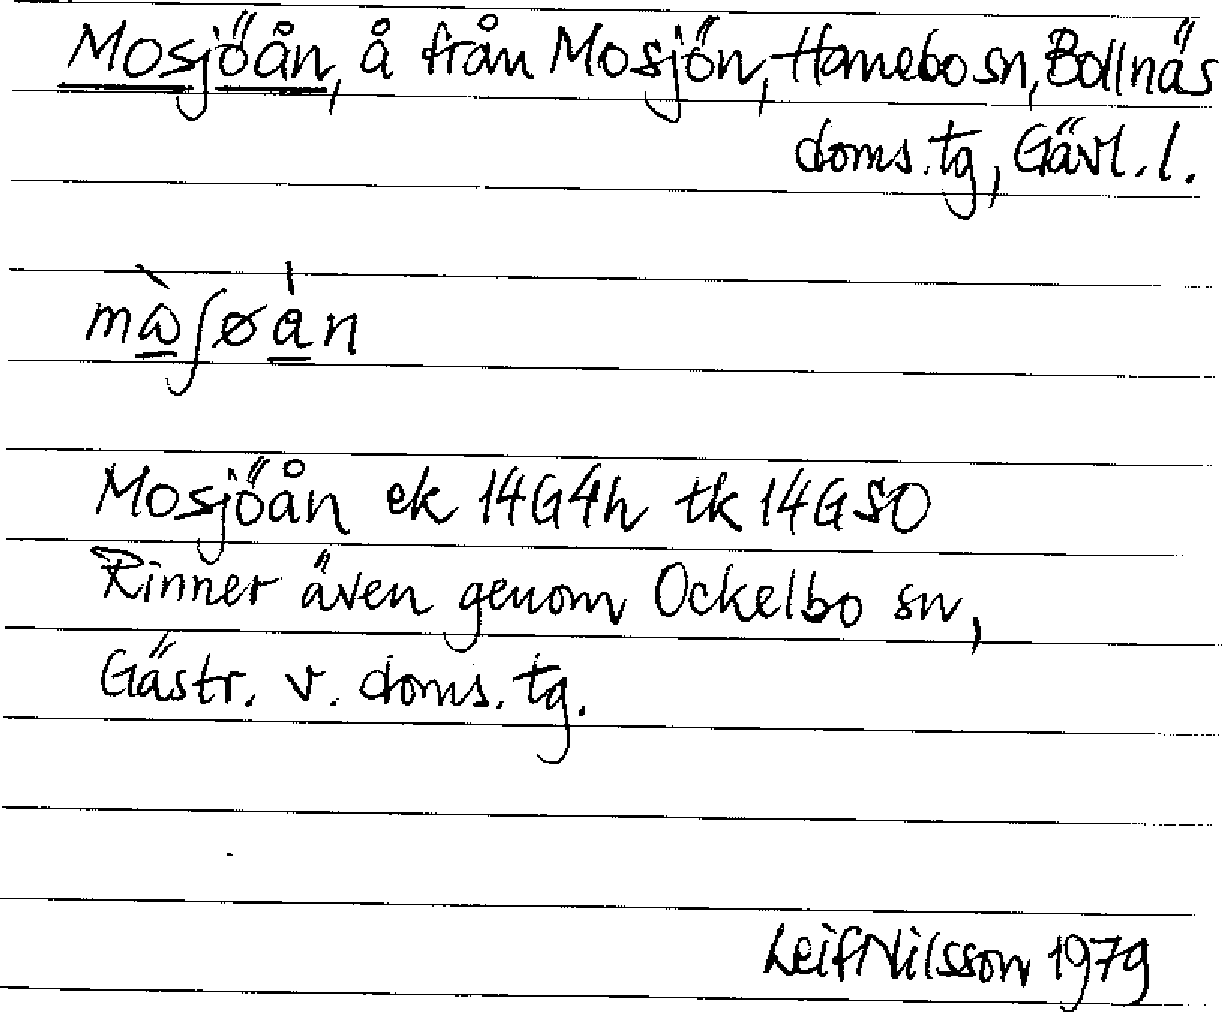 Mosjöån, å från Mosjön, Hanebo sn, Bollnäs
doms.tg, Gävl. l.
Mosjöån ek 14G4h tk 14GSO
Rinner även genom Ockelbo sn,
Gästr. v. doms. tg.
Leif Nilsson 1979